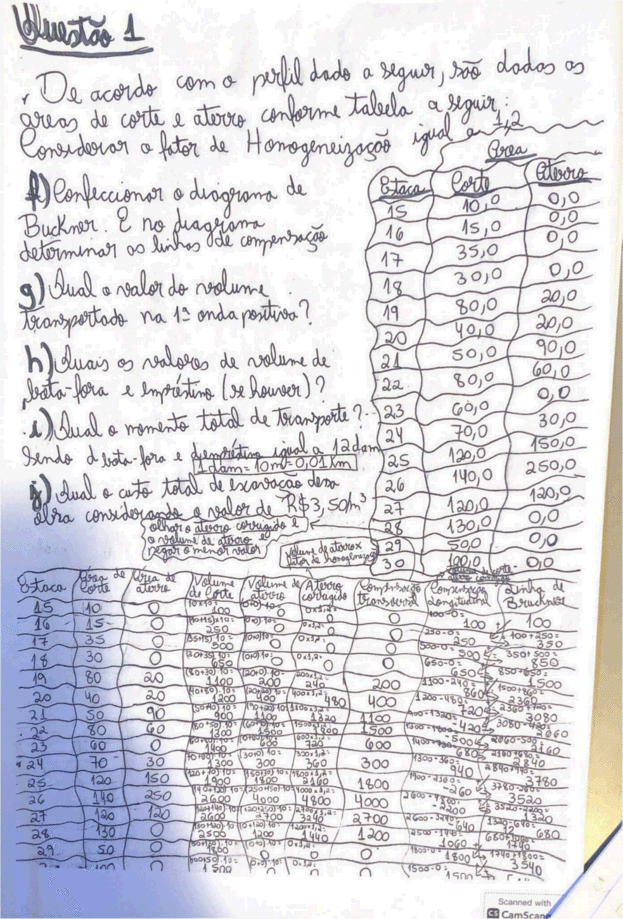 Questão 1
De acordo com o perfil dado a seguir, são dadas as
áreas de corte e aterro conforme tabela a seguir:
Considerar o fator de Homogeneização igual a 1,2
f) Confeccionar o diagrama de
Buckner. E no diagrama
determinar as linhas de compensação
g) Qual o valor do volume
transportado na 1ª onda positiva?
h) Quais os valores de volume de
bota-fora e empréstimo (se houver)?
i) Qual o momento total de transporte?
Sendo d bota-fora e d empréstimo igual a 12dam
1 dam = 10m = 0,01 Km
j) Qual o custo total de escavação dessa
obra considerando o valor de R$3,50/m³
olhar o aterro corrigido e
o volume de aterro e
pegar o menor valor
Volume de aterro x
fator de homogeneização
Área
Estaca Corte Aterro
15 10,0 0,0
16 15,0 0,0
17 35,0 0,0
18 30,0 0,0
19 80,0 20,0
20 40,0 20,0
21 50,0 90,0
22 80,0 60,0
23 60,0 0,0
24 70,0 30,0
25 120,0 150,0
26 140,0 250,0
27 120,0 120,0
28 130,0 0,0
29 50,0 0,0
30 100,0 0,0
Estaca Área de Corte Área de aterro Volume de Corte Volume de aterro Aterro corrigido Compensação transversal Compensação Longitudinal Linha de Bruckner
15 10 0 100 0 0 0 100 100
16 15 0 250 0 0 0 250 350
17 35 0 500 0 0 0 500 850
18 30 0 650 0 0 0 650
19 80 20 1100 200 240 200 860 2360
20 40 20 1200 400 480 400 720 3080
21 50 90 900 1100 1320 1100
22 80 60 1300 1500 1800 1500
23 60 0 1400 600 720 600 680 2840
24 70 30 1300 300 360 300 940 3780
25 120 150 1900 1800 2160 1800 -260 3520
26 140 250 2600 4000 4800 4000
27 120 120 2600 2700 3240 2700 680
28 130 0 2500 1200 1440 1200 1060 1740
29 50 0 1800 0 0 0 1800 3540
1500 0 0 1500
Scanned with
CS CamScan